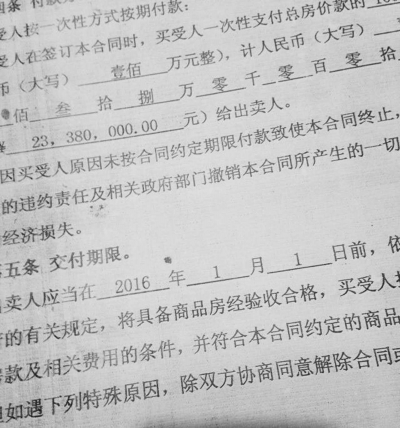 四条 付款
受人按一次性方式按期付款：
受人在签订本合同时，买受人一次性支付总房价款的 100
币（大写） 壹佰 万元整），计人民币（大写）
佰 叁 拾 捌 万 零 千 零 百 零 拾
23,380,000.00 元）给出卖人。
因买受人原因未按合同约定期限付款致使本合同终止，
的违约责任及相关政府部门撤销本合同所产生的一切
经济损失。
五条 交付期限。
卖人应当在 2016 年 1 月 1 日前，依
的有关规定，将具备商品房经验收合格，买受人按
款及相关费用的条件，并符合本合同约定的商品
如遇下列特殊原因，除双方协商同意解除合同或